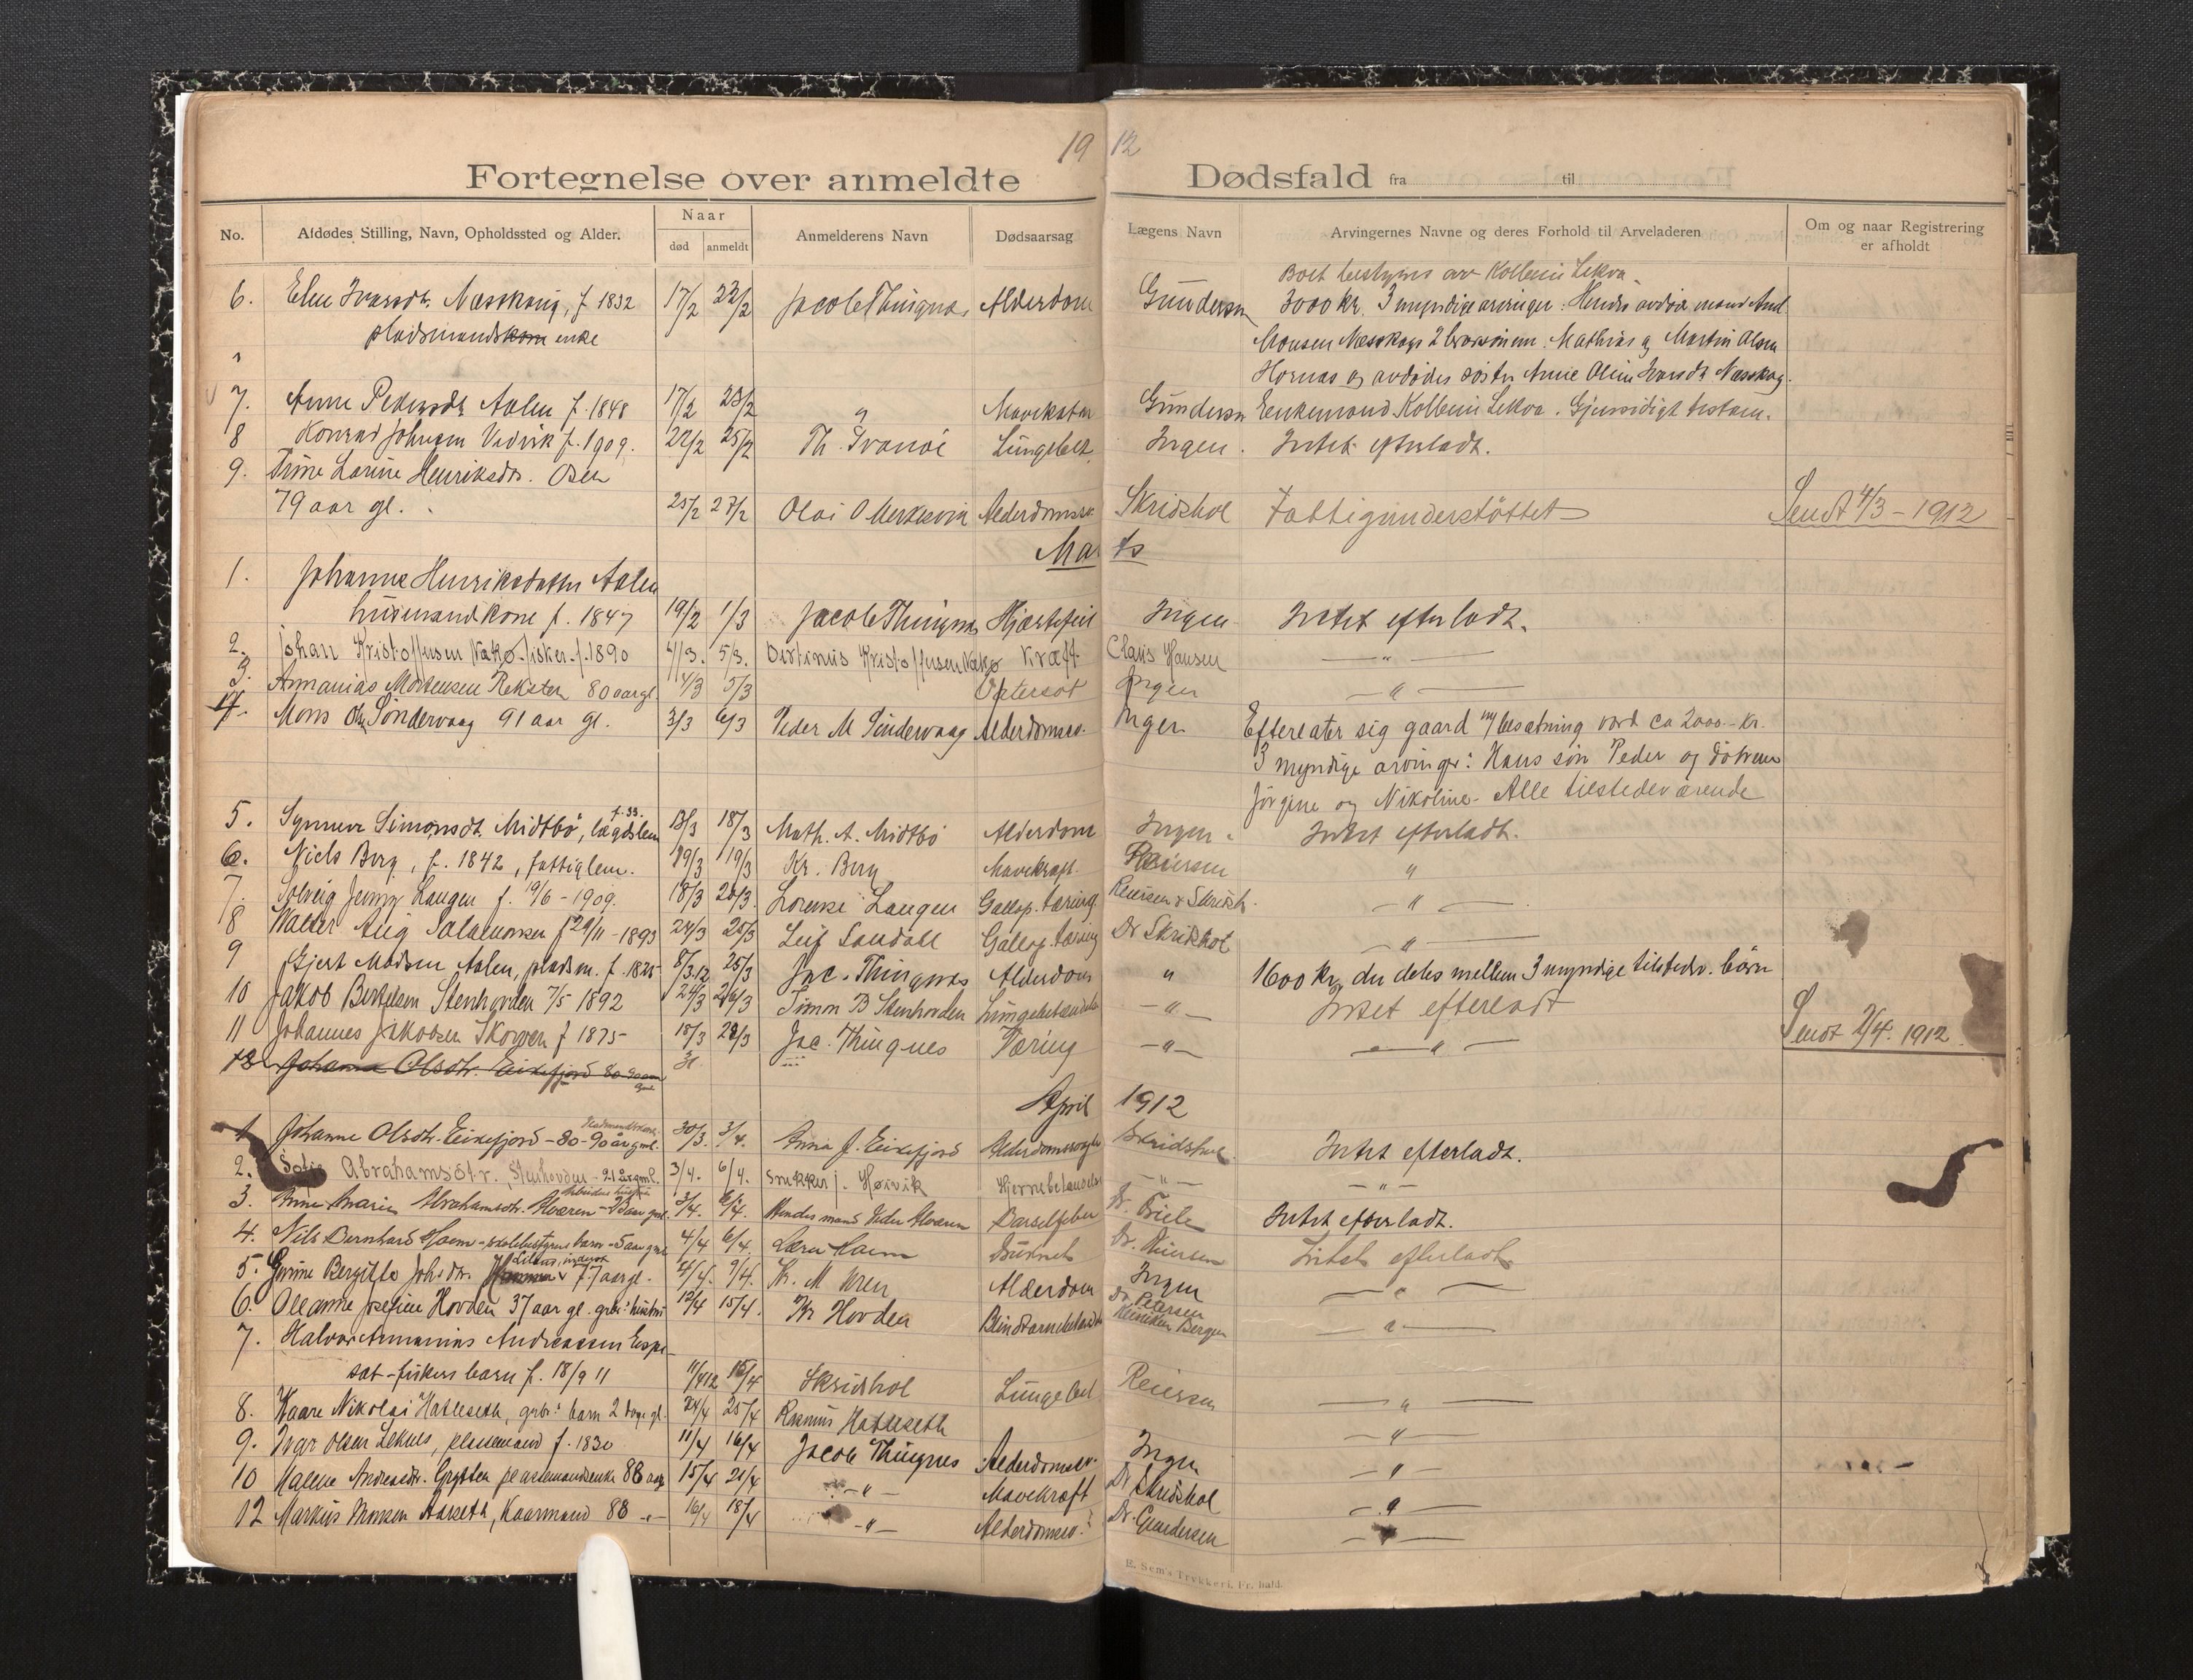 19 12
Fortegnelse over anmeldte Dødsfald fra til
No. Afdødes Stilling, Navn, Opholdssted og Alder. Naar død anmeldt Anmelderens Navn Dødsaarsag Lægens Navn Arvingernes Navne og deres Forhold til Arveladeren Om og naar Registrering er afholdt
Boet bestyres av Kolbein Lekva
6. Elen Ivarsdtr. Næsskaug, f 1832 17/2 22/2 Jacob Thingnes Alderdom Gundersen 3000 kr. 3 myndige arvinger: Hendes avdøde mand And.
pladsmandskone enke Monsen Næsskogs 2 brorsønner: Mathias og Martin Olsen
Hornas og avdødes søster Anne Oline Ivarsdtr Næsskog.
7. Anne Pedersdtr Aalen f. 1848 17/2 23/2 " Mavekatar Gundersen Enkemand Kolbein Lekva. Gjensidigt testam.
8 Konrad Johnsen Vedvik f. 1909. 22/2 25/2 Th. Svanøe Lungebet. Ingen. Intet efterladt.
9. Trine Larine Henriksdtr. Osen
79 aar gl. 25/2 27/2 Olai O Merkesvik Alderdomssv. Skridshol Fattigunderstøttet Sendt 4/3 - 1912
Marts
1. Johanne Henriksdatter Aalen
husmandskone f. 1847 19/2 1/3 Jacob Thingnes Hjertefeil Ingen Intet efterladt.
2. Johan Kristoffersen Vakø. fisker. f. 1890 4/3. 5/3. Kristoffersen Vakø Kræft Claus Hansen — " —
3. Annanias Mortensen Reksten 80 aar gl. 4/3 5/3 Ingen — " —
4. Mons Ols. Søndervaag 91 aar gl. 3/3 6/3 Peder M Søndervaag Alderdomssv. Ingen Efterlater sig gaard m/ besætning værd ca 2000 - kr.
3 myndige arvinger: Hans søn Peder og døtrene
Jørgine og Nikoline. Alle tilstedeværende
5. Synneve Simonsdt. Midtbø, f. 33. lægdslem 13/3 18/3 Math. A. Midtbø Alderdom Ingen. Intet efterladt.
6. Niels Berg, f. 1842, fattiglem. 19/3 19/3 Kr. Berg Mavekræft. Reiersen "
7. Solveig Jenny Langen f. 19/6 - 1909. 18/3 20/3. Lorense Langen Gallop. tæring. Reiersen & Skridsh. — " —
8 Walter Aug Salamonsen f 29/11 - 1893 24/3 25/3 Leif Sandal Gallop. tæring Dr Skridshol — " —
9 Gjert Madsen Aalen, pladsm. f. 1825 8/3.12 25/3 Jac. Thingnes Alderdom " 1600 kr, der deles mellem 3 myndige tilstedev. børn
10 Jakob Bertelsen Stenhovden 7/5 1892 24/3 26/3 Simon B Stenhovden Lungebetændelse — " — Intet efterladt
11 Johannes Jakobsen Skorpen f 1875 18/3 28/3 Jac. Thingnes Tæring — " — — " — Sendt 2/4. 1912
12 Johanne Olsdtr. Eikefjord 80-90 aar gml
April 1912
1 Johanne Olsdtr. Eikefjord - 80 - 90 år gml. 30/3. 3/4. Anna J. Eikefjord Skridshol. Intet efterladt.
2. Sofie Abrahamsdtr. Stenhovden - 21 år gml. 3/4. 6/4. Snekker J. Høivik Hjernebetændelse — " — — " —
3. Anne Marie Abrahamsdtr. 3/4. 6/4. Hendes mand Peder Barselfeber Dr. Friele Intet efterladt.
4. Nils Bernhard - skolebestyrers barn - 5 aar gml 4/4 6/4. Lærer Druknet Dr. Reiersen Intet efterladt
5. Bergitte Johsdtr. 77 aar gl. 4/4. 9/4. Kr. M Alderdom Ingen — " —
6. Oleanne Josefine Hovden 37 aar gl. grbr: hustru 12/4 15/4. Kr Hovden Blindtarmsbetændelse Dr. Bergen — " —
7. Halvor Annanias Andreassen Espe-
sæt - fiskers barn f. 18/9 11 11/4 12 16/4 Skridshol Lungebet Reiersen — " —
8. Kaare Nikolai Hatleseth, grbr: barn 2 dage gl. 24/4 25/4 Rasmus Hatleseth — " —
9. Ivar Olsen Leknes, plassemand f. 1830 11/4 16/4 Jacob Thingnes Alderdomssv. Ingen — " —
10 Malene Andreasdtr. Grytten plassemandsenke 88 aar 15/4 20/4 — " — Mavekræft Dr Skridshol — " —
12 Markus Monsen Aarseth, Kaarmand 88 — " — 16/4 18/4 — " — Alderdomssv. Dr. Gundersen — " —
E. Sem's Trykkeri, Fr. hald.